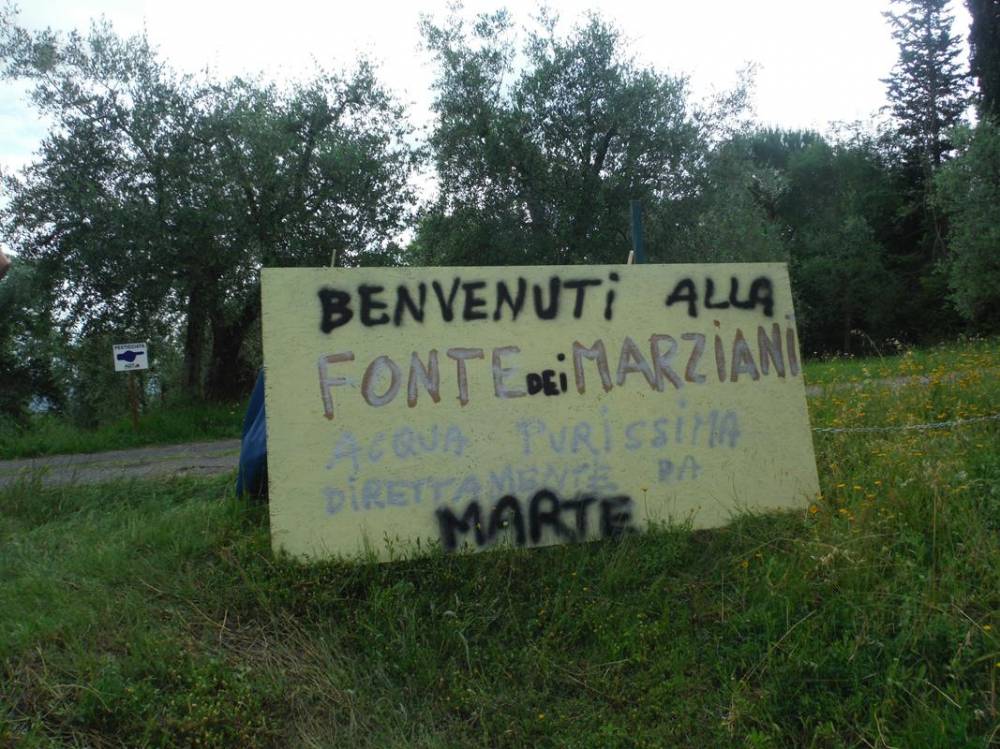 BENVENUTi ALLA
FONTE DEi MARZiANi
ACQUA PURiSSiMA
DiRETTAMENTE DA
MARTE